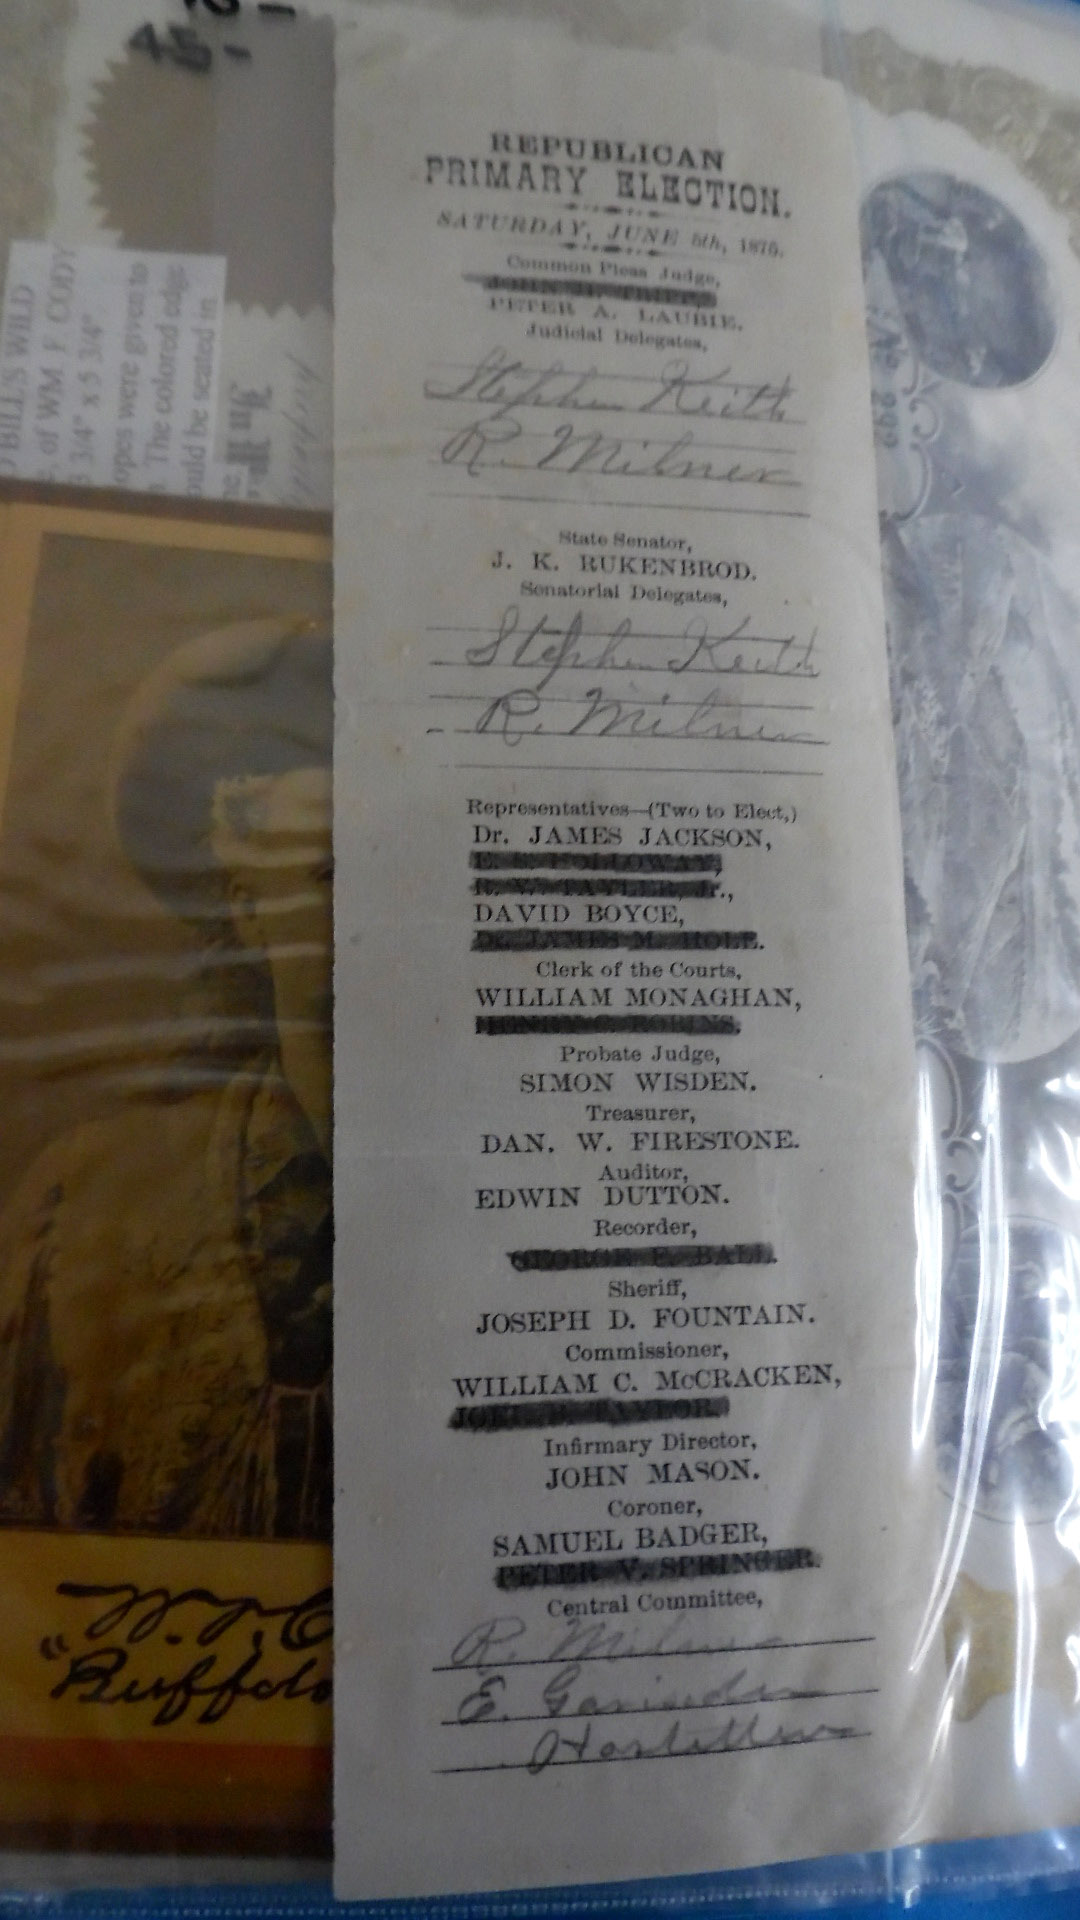 45-
BILL'S WILD
of WM F. CODY
3 1/4" x 5 3/4"
opes were given to
The colored edge
ould be seated in
REPUBLICAN
PRIMARY ELECTION.
SATURDAY, JUNE 5th, 1875.
Common Pleas Judge,
PETER A. LAUBIE.
Judicial Delegates,
Stephen Keith
R. Milner
State Senator,
J. K. RUKENBROD.
Senatorial Delegates,
Stephen Keith
R. Milner
Representatives—(Two to Elect,)
Dr. JAMES JACKSON,
E. HOLLOWAY,
R. W. TAYLER, Jr.,
DAVID BOYCE,
Dr. JAMES M. HOLE.
Clerk of the Courts,
WILLIAM MONAGHAN,
HENRY C. ROBINS.
Probate Judge,
SIMON WISDEN.
Treasurer,
DAN. W. FIRESTONE.
Auditor,
EDWIN DUTTON.
Recorder,
GEORGE F. BALL.
Sheriff,
JOSEPH D. FOUNTAIN.
Commissioner,
WILLIAM C. McCRACKEN,
JOEL B. TAYLOR.
Infirmary Director,
JOHN MASON.
Coroner,
SAMUEL BADGER,
PETER V. SPRINGER.
Central Committee,
R. Milner
E.
W. F. C
"Buffalo